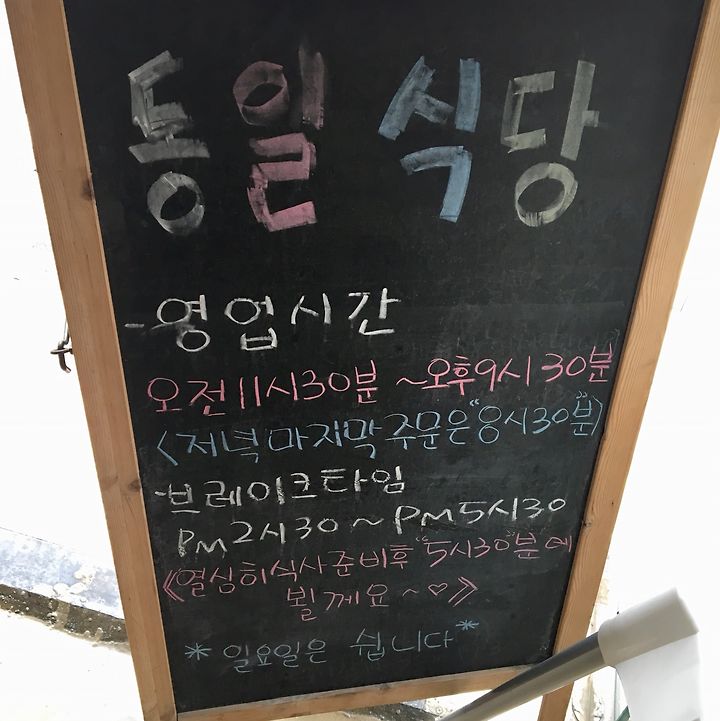 통일 식당
-영업시간
오전11시30분 ~오후9시 30분
<저녁 마지막 주문은 "8시30"분>
-브레이크타임
PM 2시30 ~ PM 5시30
《열심히 식사 준비후 "5시30"분에
뵐께요~♡》
*일요일은 쉽니다*